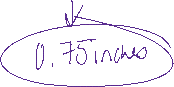 0.75 inches